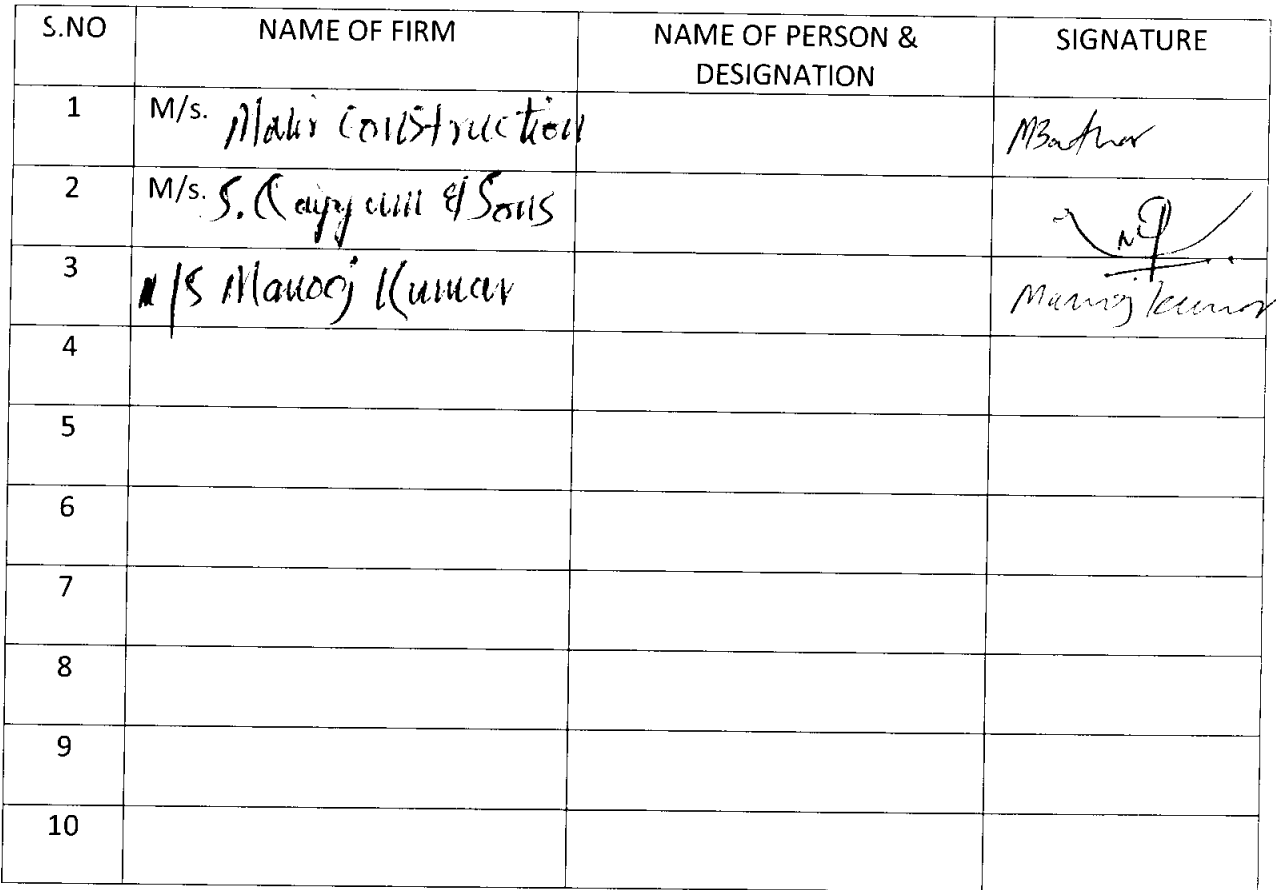 S.NO NAME OF FIRM NAME OF PERSON & DESIGNATION SIGNATURE
1 M/s. Construction
2 M/s. S. Qayyum & Sons
3 M/S Manooj Kumar Manoj kumar
4
5
6
7
8
9
10